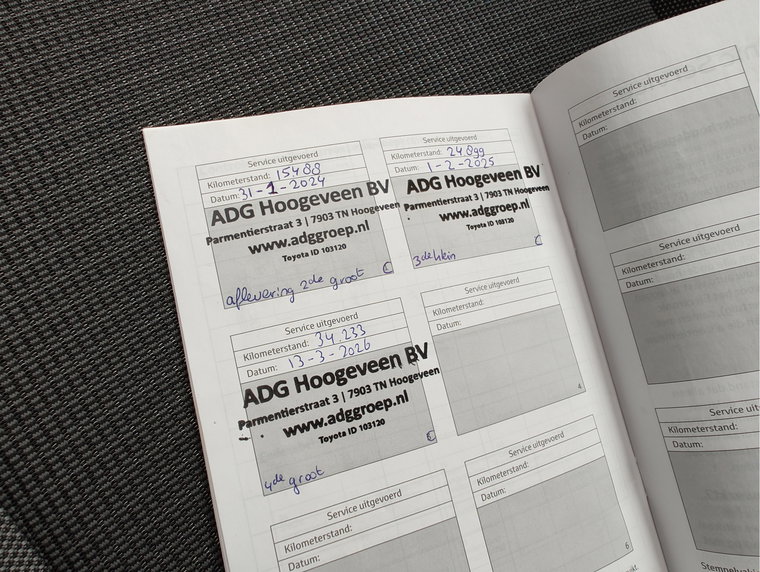 Service uitgevoerd
Kilometerstand: 15488
Datum: 31-1-2024
ADG Hoogeveen BV
Parmentierstraat 3 | 7903 TN Hoogeveen
www.adggroep.nl
Toyota ID 103120
aflevering 2de groot
Service uitgevoerd
Kilometerstand: 24.899
Datum: 1-2-2025
ADG Hoogeveen BV
Parmentierstraat 3 | 7903 TN Hoogeveen
www.adggroep.nl
Toyota ID 103120
3de klein
Service uitgevoerd
Kilometerstand: 34.233
Datum: 13-3-2026
ADG Hoogeveen BV
Parmentierstraat 3 | 7903 TN Hoogeveen
www.adggroep.nl
Toyota ID 103120
4de groot
Service uitgevoerd
Kilometerstand:
Datum:
4
Service uitgevoerd
Kilometerstand:
Datum:
Service uitgevoerd
Kilometerstand:
Datum:
6
Service uitgevoerd
Kilometerstand:
Datum:
Service uitgevoerd
Kilometerstand:
Datum:
Service uitg
Kilometerstand:
Datum: